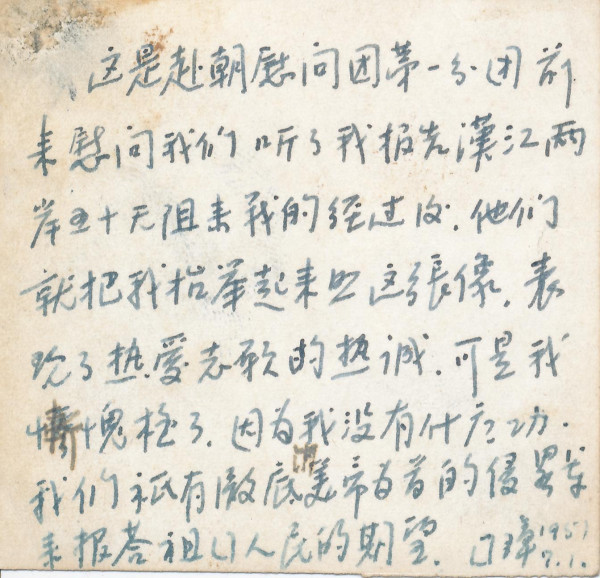 这是赴朝慰问团第一分团前
来慰问我们听了我报告漢江两
岸五十天阻击战的经过后.他们
就把我抬举起来照这張像.表
现了热爱志願的热诚.可是我
慚愧极了.因为我没有什么功.
我们祇有澈底 美帝为首的侵畧
来报荅祖囗人民的期望.
1951
7.1.